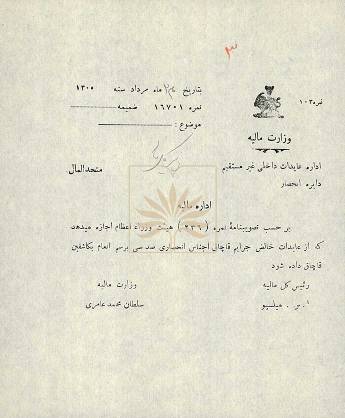 ۳
نمره ۱۰۲
وزارت مالیه
بتاریخ ماه مرداد سنه ۱۳۰۵
نمره ۱۶۷۰۱ ضمیمه
موضوع :
اداره عایدات داخلی غیر مستقیم
دایره انحصار
متحدالمال
اداره مالیه
بر حسب تصویبنامهٔ نمره ( ۲۳۶ ) هیئت وزراء عظام اجازه میدهد
که از عایدات خالص جرایم قاچاق اجناس انحصاری صد سی برسم انعام بکاشفین
قاچاق داده شود
رئیس کل مالیه
وزارت مالیه
ا . س . هیلسیو
سلطان محمد عامری